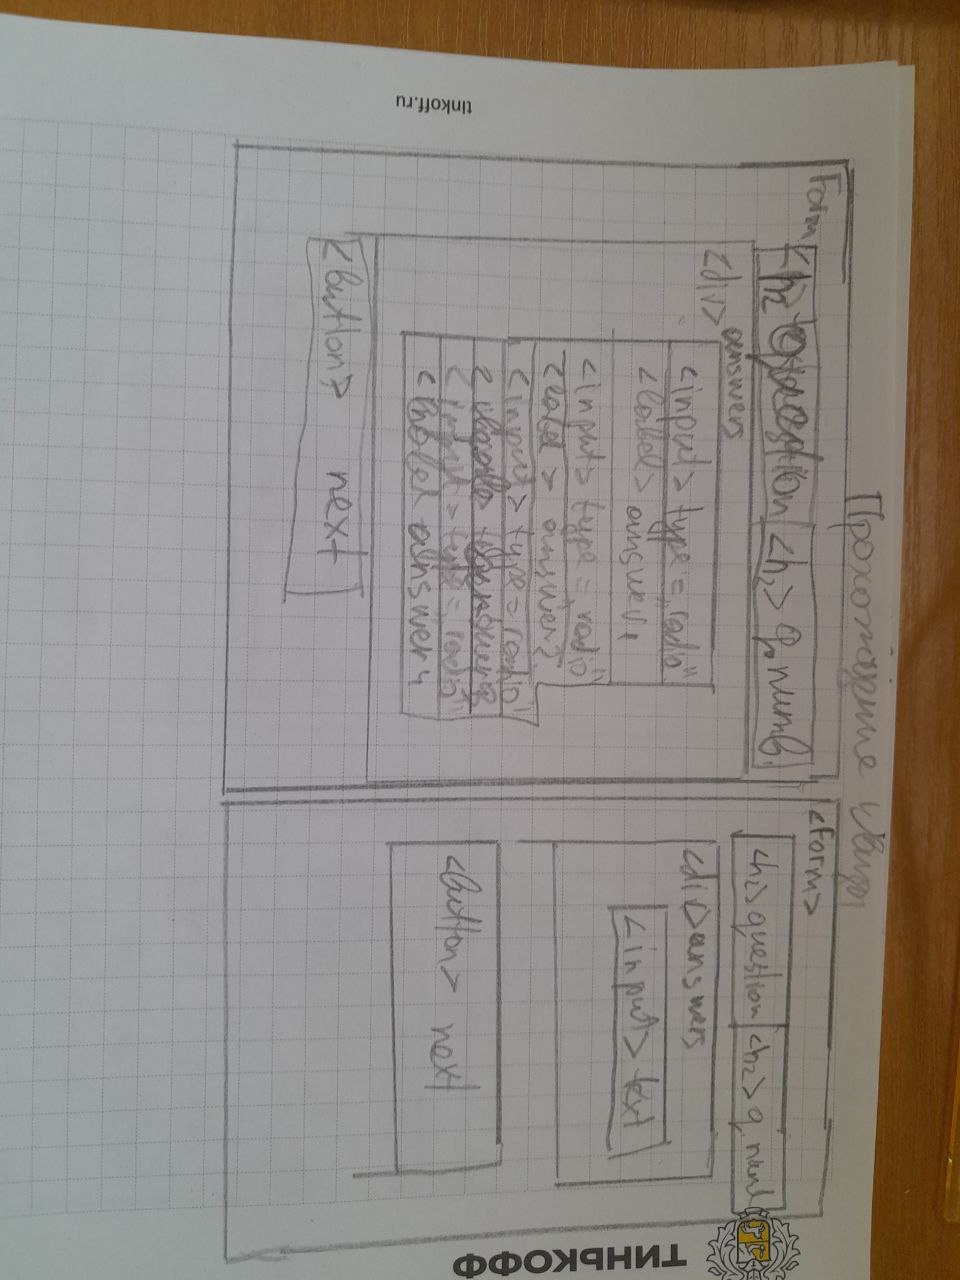 tinkoff.ru
Прохождение
Form
<h2 question <h2> q. numb.
<div> answers
<input> type="radio"
<label> answer 1
<input> type="radio"
<label> answer 2
<input> type="radio"
<input> type="radio"
answer 4
<button> next
<form>
<h2> question <h2> q.
<div> answers
<input> text
<button> next
ТИНЬКОФФ